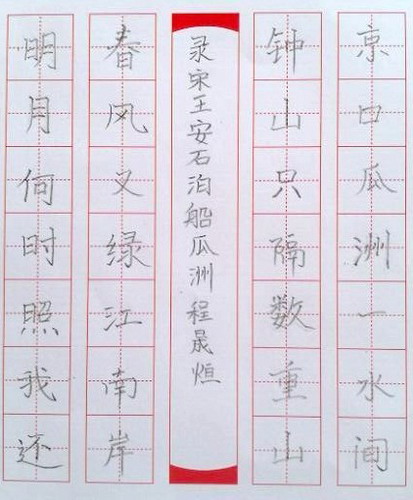 京口瓜洲一水间
钟山只隔数重山
录宋王安石泊船瓜洲程晟烜
春风又绿江南岸
明月何时照我还